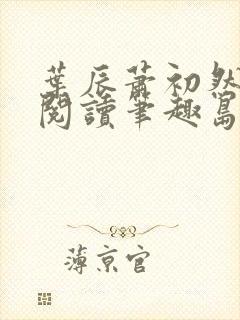 葉辰蕭初然
閱讀筆趣島
薄京官